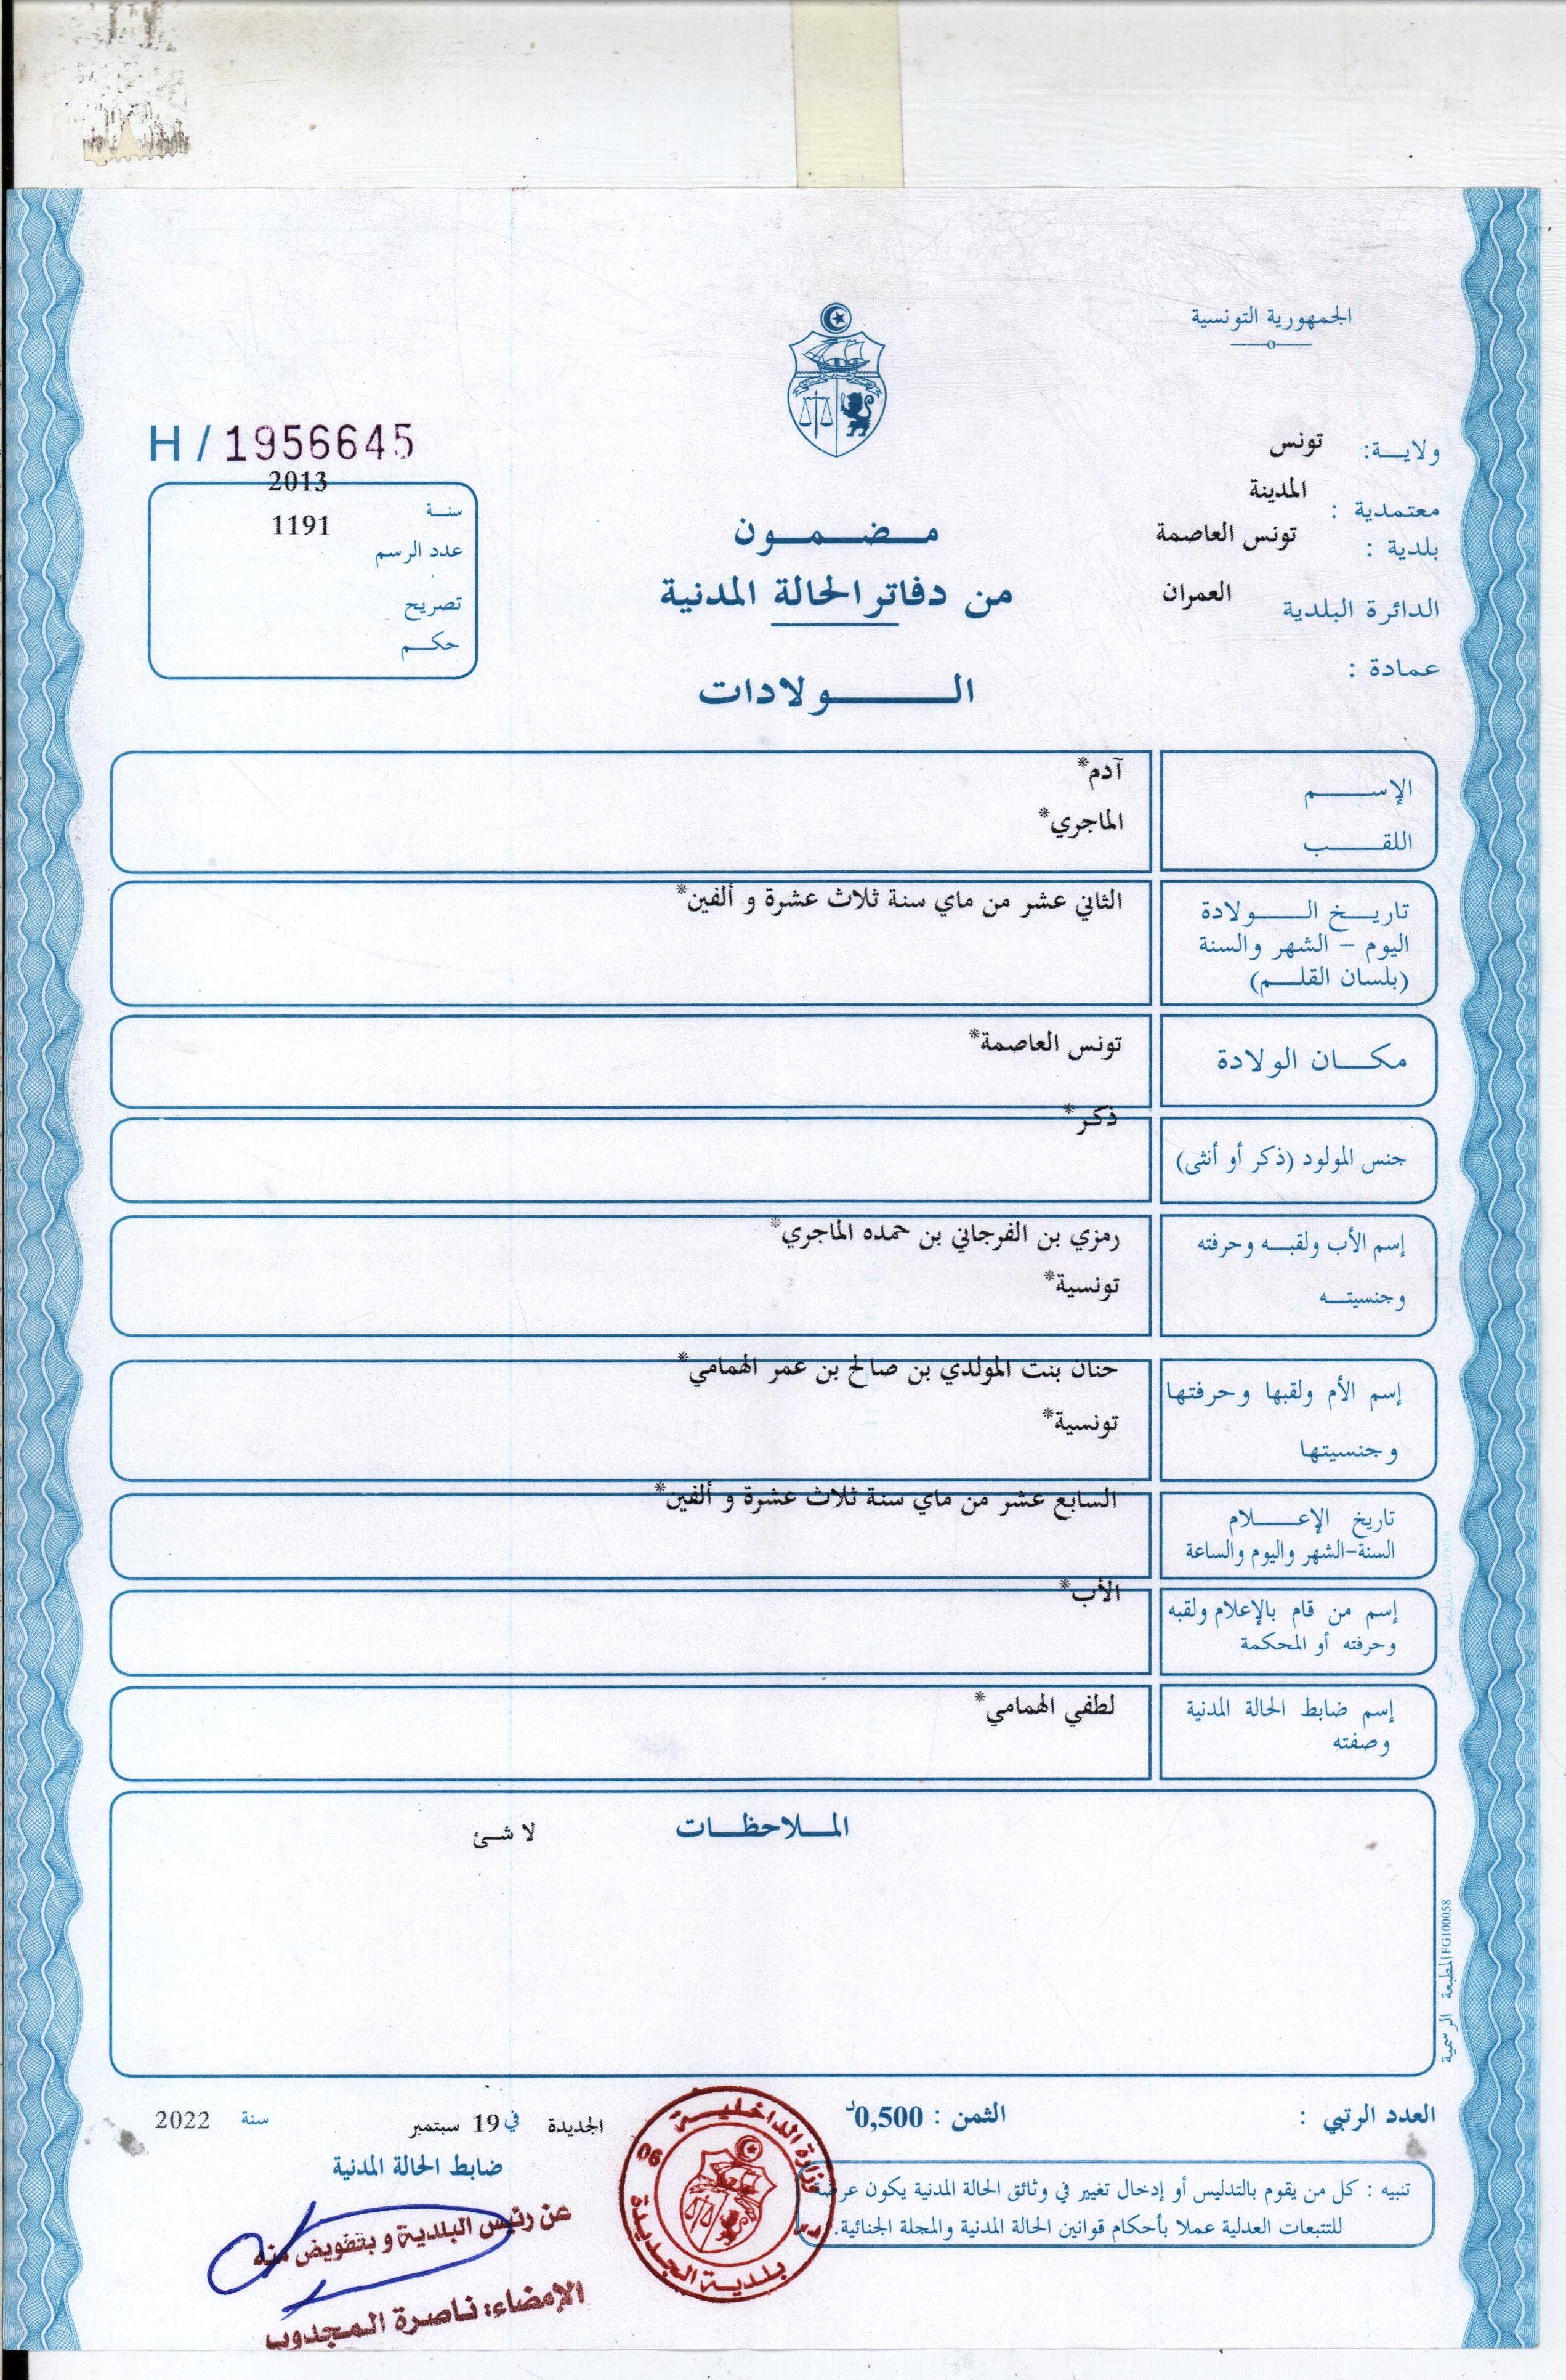 الجمهورية التونسية
ولاية: تونس
معتمدية : المدينة
بلدية : تونس العاصمة
الدائرة البلدية العمران
عمادة :
H / 1956645
سنة 2013
عدد الرسم 1191
تصريح
حكم
مضمون
من دفاتر الحالة المدنية
الولادات
الإسم آدم*
اللقب الماجري*
تاريخ الولادة الثاني عشر من ماي سنة ثلاث عشرة و ألفين*
اليوم – الشهر والسنة
(بلسان القلم)
مكان الولادة تونس العاصمة*
جنس المولود (ذكر أو أنثى) ذكر*
إسم الأب ولقبه وحرفته رمزي بن الفرجاني بن حمده الماجري*
وجنسيته تونسية*
إسم الأم ولقبها وحرفتها حنان بنت المولدي بن صالح بن عمر الهمامي*
وجنسيتها تونسية*
تاريخ الإعلام السابع عشر من ماي سنة ثلاث عشرة و ألفين*
السنة-الشهر واليوم والساعة
إسم من قام بالإعلام ولقبه الأب*
وحرفته أو المحكمة
إسم ضابط الحالة المدنية لطفي الهمامي*
وصفته
الملاحظات لا شئ
المطبعة الرسمية FG100058
العدد الرتبي : الثمن : 0,500د
الجديدة في 19 سبتمبر سنة 2022
ضابط الحالة المدنية
تنبيه : كل من يقوم بالتدليس أو إدخال تغيير في وثائق الحالة المدنية يكون عرضة
للتتبعات العدلية عملا بأحكام قوانين الحالة المدنية والمجلة الجنائية.
وزارة الداخلية
06
بلدية الجديدة
عن رئيس البلدية و بتفويض منه
الإمضاء: ناصرة المجدوب